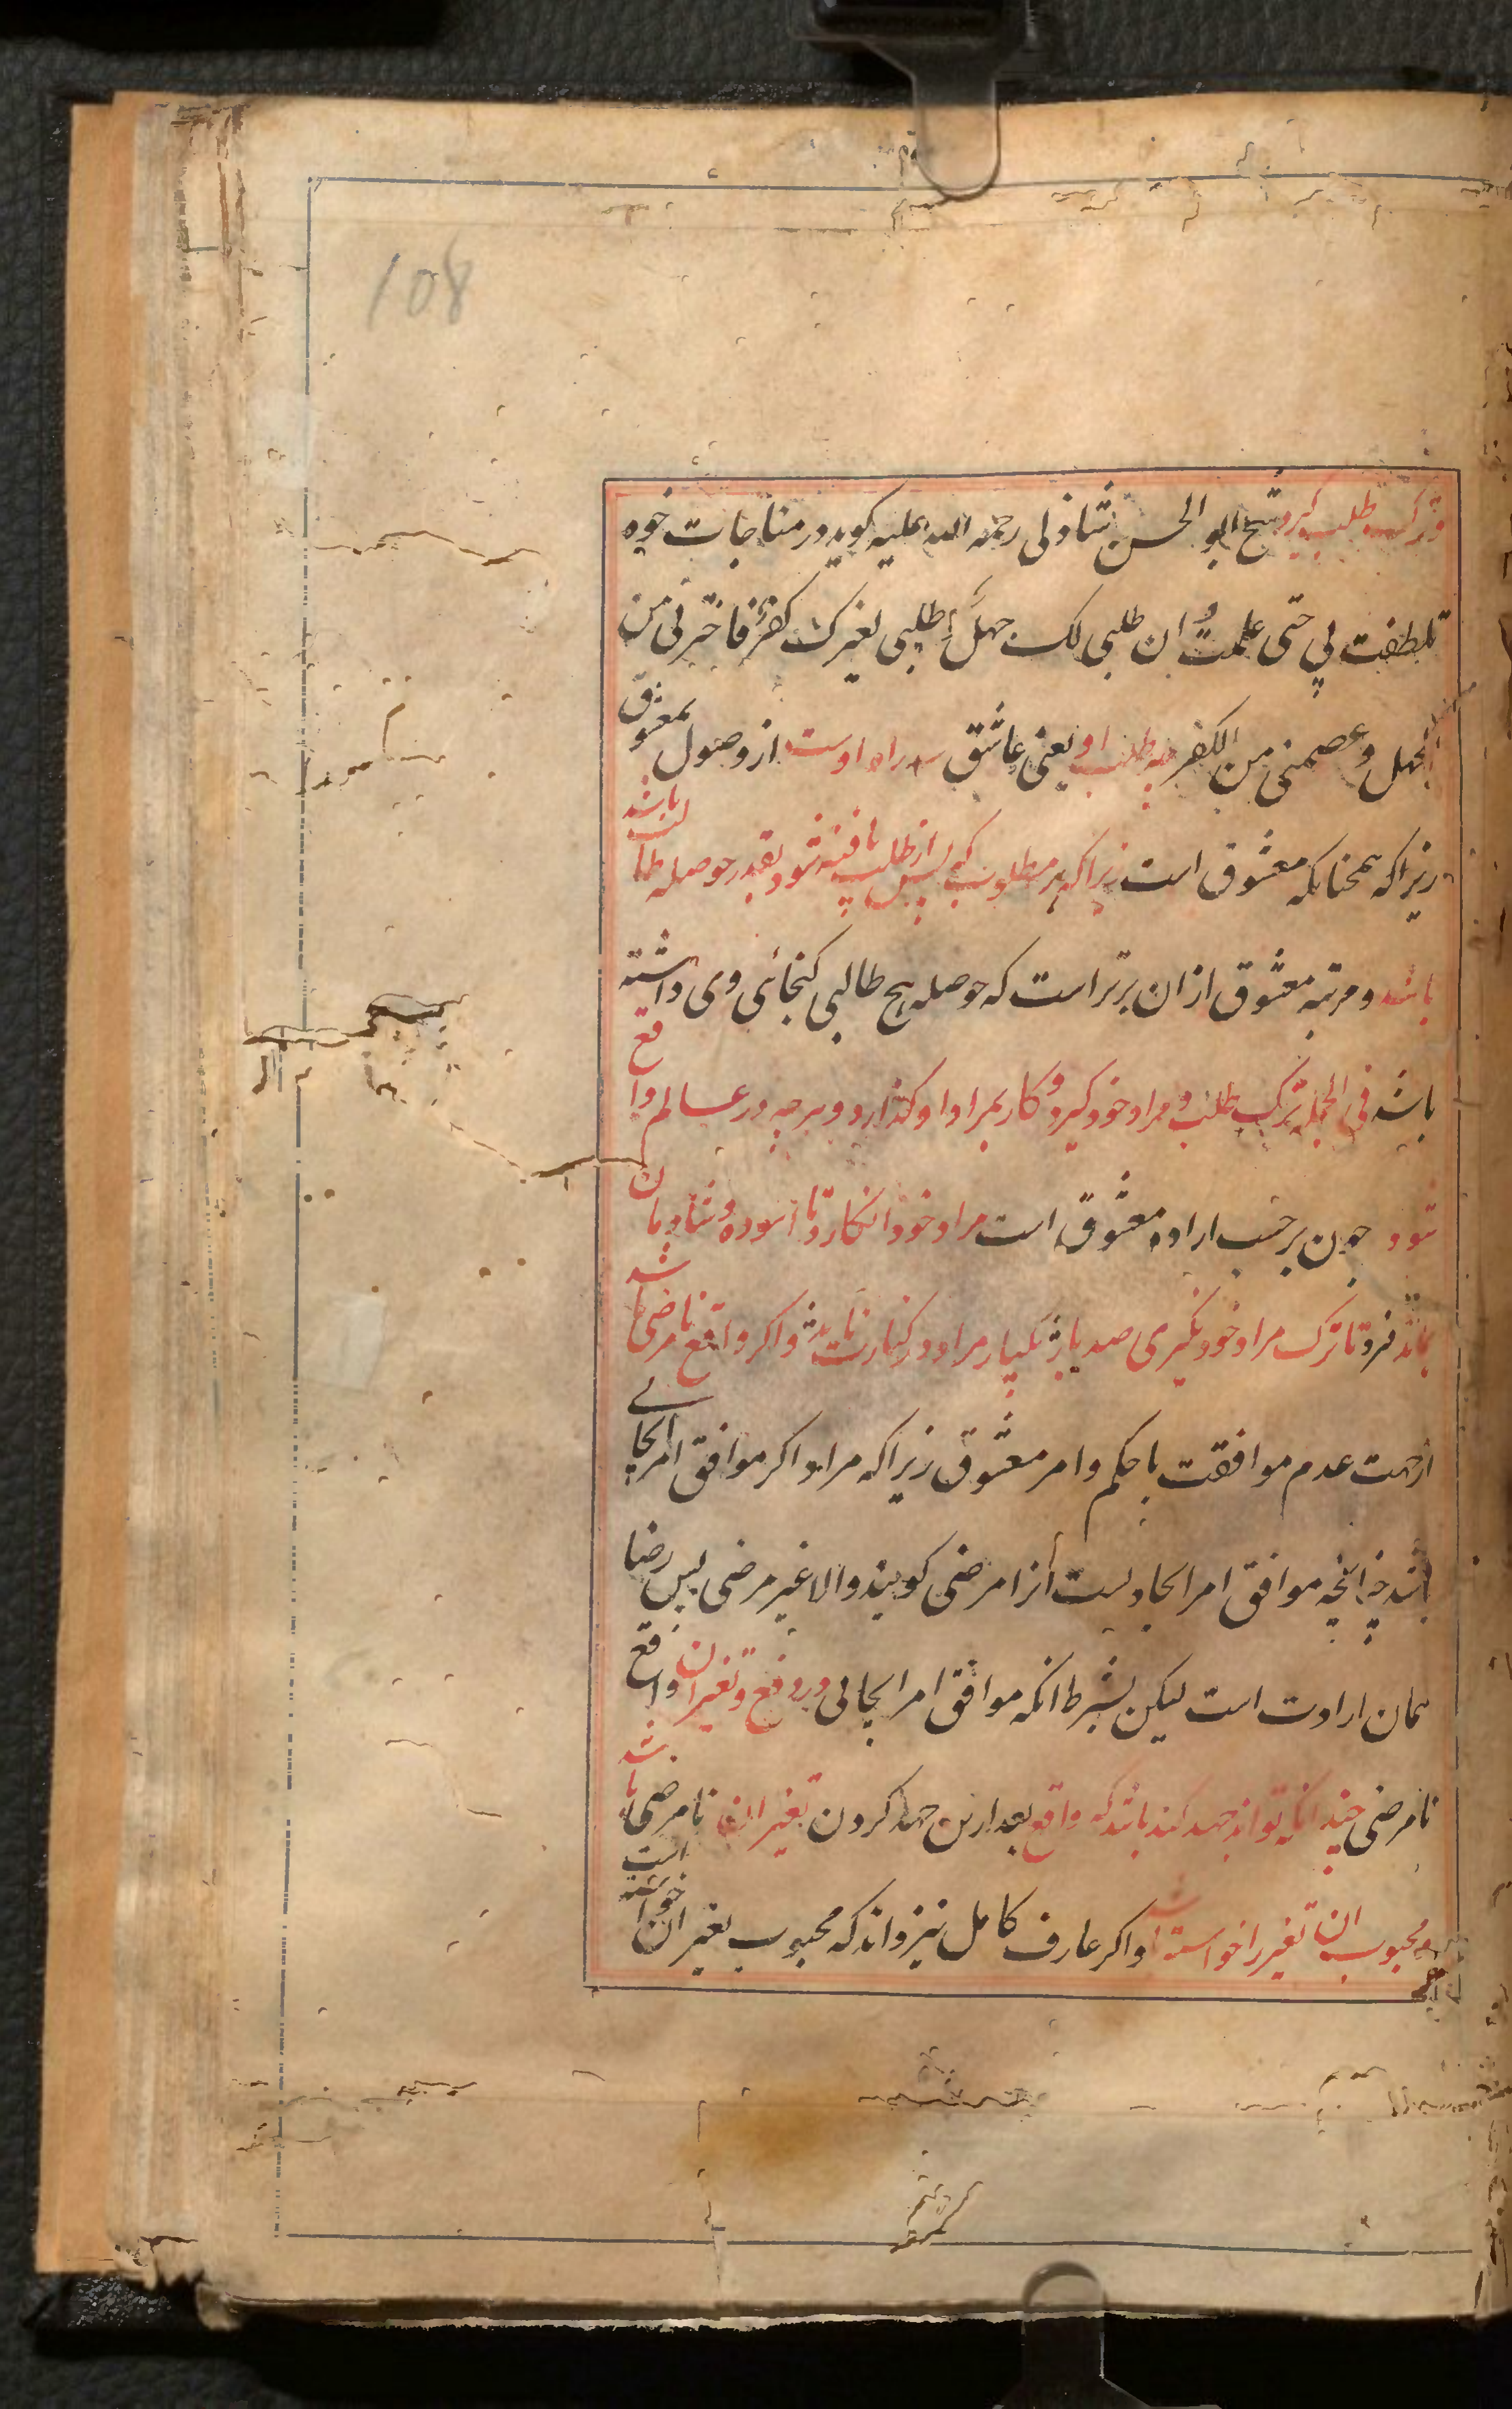 108
و ترک طلب گیرد شیخ ابو الحسن شاذلی رحمة الله علیه کوید در مناجات خود
تلطفت بی حتی علمتُ ان طلبی لک جهلٌ و طلبی لغیرک کفرٌ فاجرنی من
الجهل و عصمنی من الکفر چه طلب او یعنی عاشق سد راه اوست از وصول بمعشوق
زیرا که همچنانکه معشوق است زیرا که هر مطلوب که پس از طلب یافته شود بقدر حوصله طالب باشد
باشد و مرتبه معشوق از ان برتر است که حوصله هیچ طالبی کنجائی وی داشته
باشد فی الجمله ترک طلب و مراد خود گیرد و کار بمراد او گذارد و هر چه در عالم واقع
شود چون بر حسب اراده معشوق است مراد خود انگارد تا آسوده و شادمان
باند فرد تا ترک مراد خود نگیری صد بار یکبار مراد در کنارت ناید و اکر واقع نامرضی باشد
از جهت عدم موافقت با حکم و امر معشوق زیرا که مراد اکر موافق امر ایجابی
باشد چه انچه موافق امر ایجادیست آنرا مرضی کویند والا غیر مرضی پس رضا
همان ارادت است لیکن بشرط انکه موافق امر ایجابی و در دفع و تغیر ان واقع
نامرضی چندانکه تواند جهد کند باشد که واقع بعد ازین جهد کردن تغیر ان نامرضی باشد
و محبوب ان تغیر را خواسته و اکر عارف کامل نیز داند که محبوب تغیر ان خواسته است